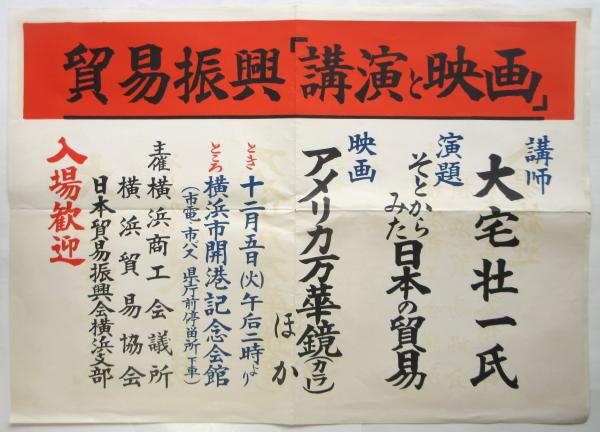 貿易振興「講演と映画」
講師
大宅壮一氏
演題
そとから
みた日本の貿易
映画
アメリカ万華鏡(カラー)
ほか
とき 十二月五日(火)午后二時より
ところ 横浜市開港記念会館
(市電、市バス 県庁前停留所下車)
主催 横浜商工会議所
横浜貿易協会
日本貿易振興会横浜支部
入場歓迎